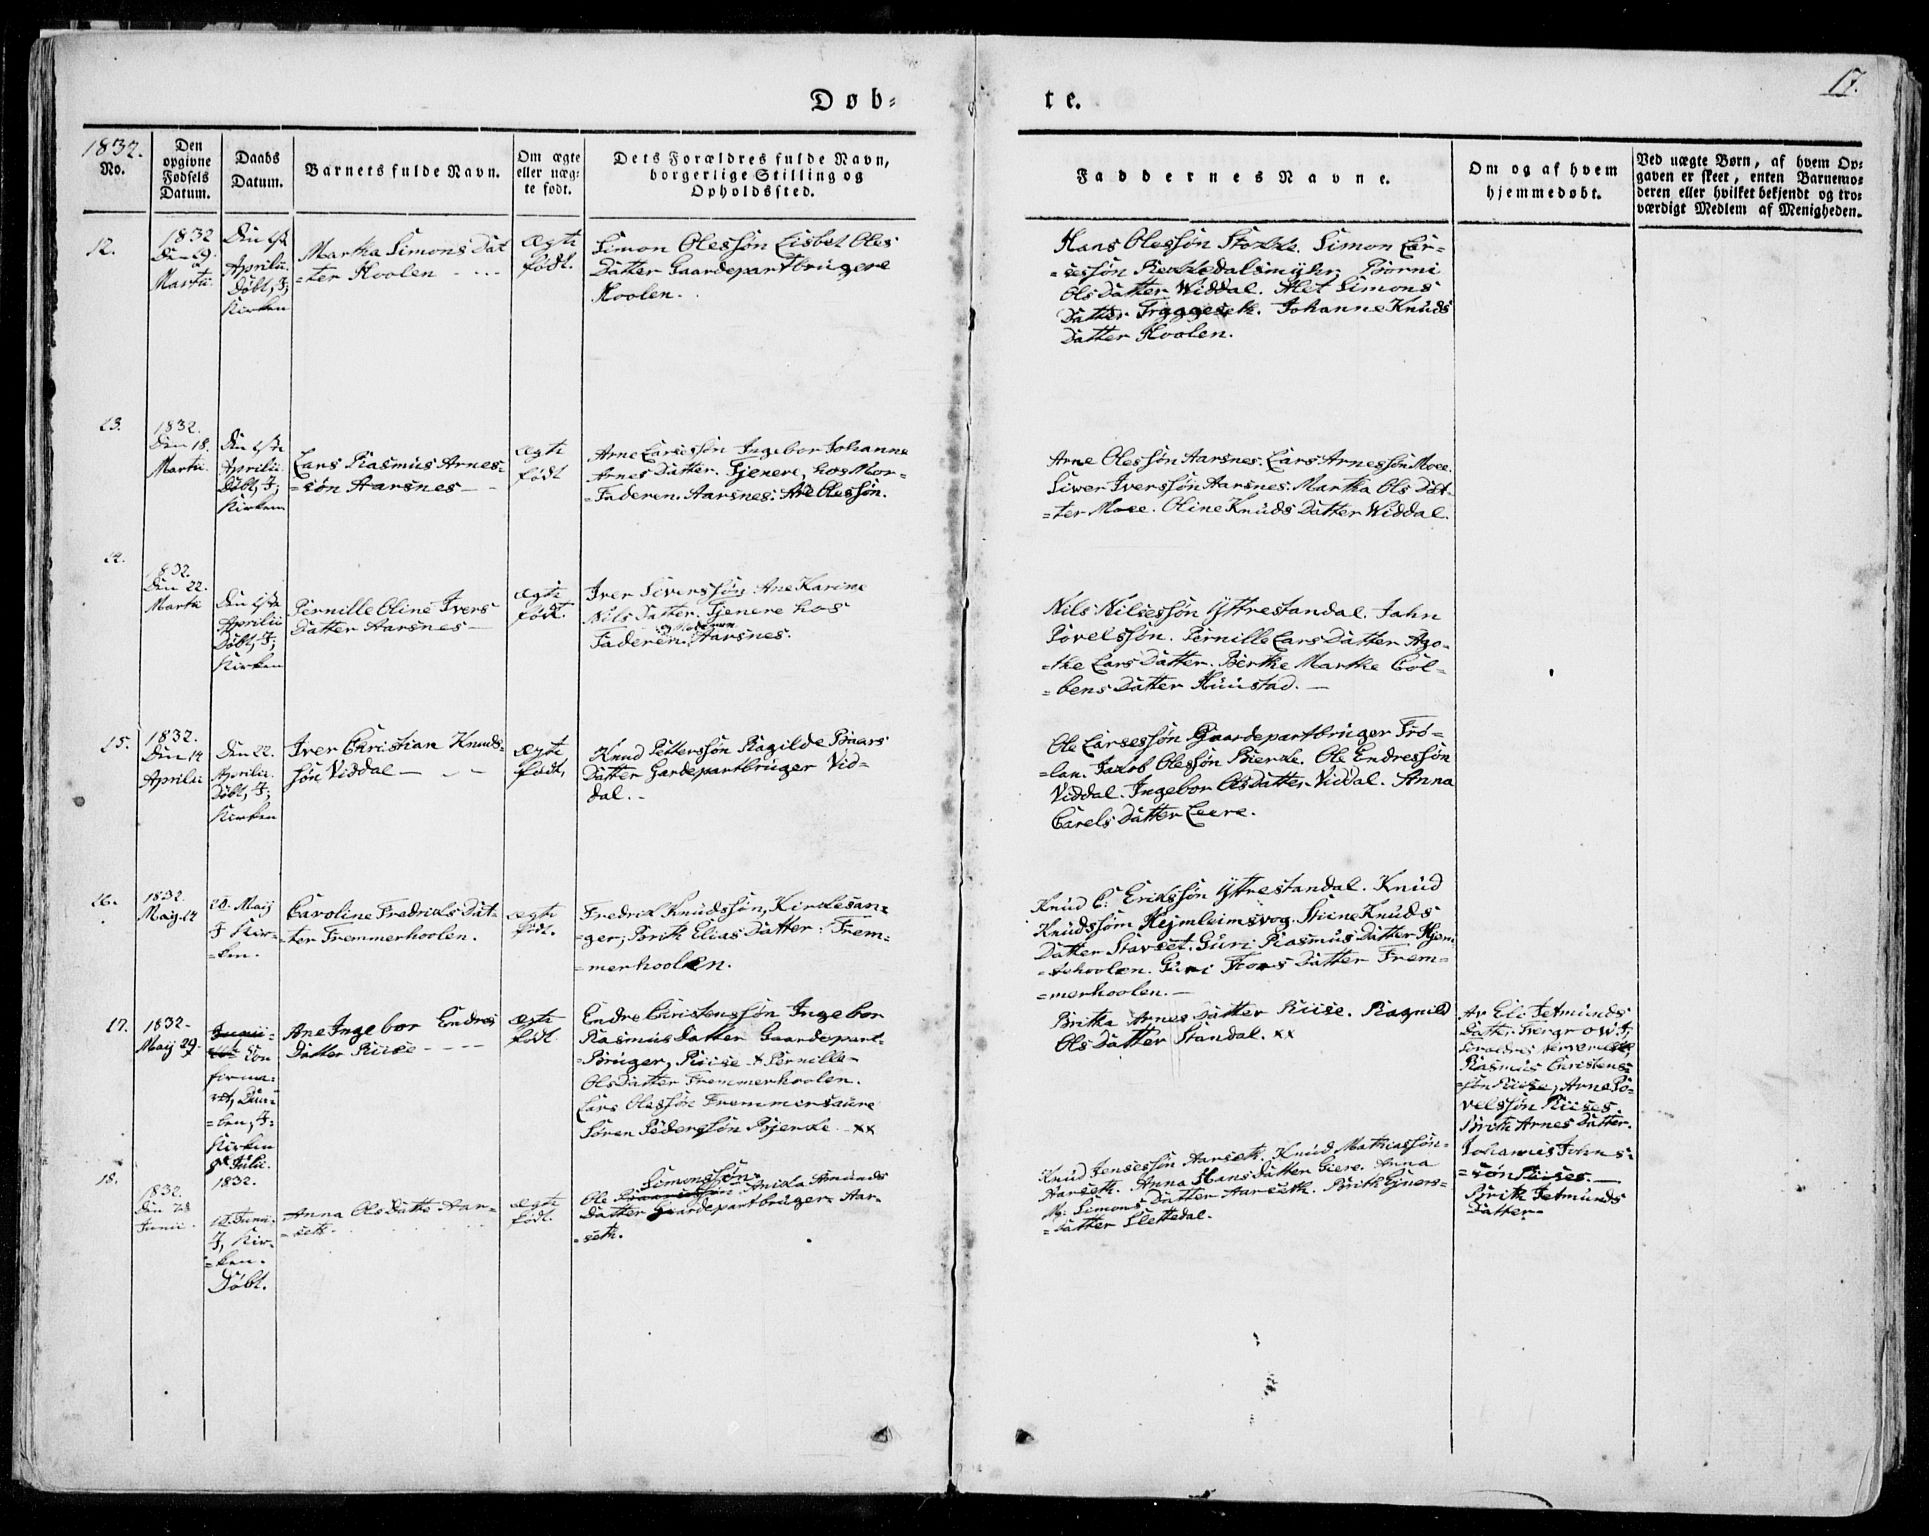 17.
Døb-
te.
1832.
No.
Den
opgivne
Fødsels
Datum.
Daabs
Datum.
Barnets fulde Navn.
Om ægte
eller uæg-
te født.
Dets Forældres fulde Navn,
borgerlige Stilling og
Opholdssted.
Faddernes Navne.
Om og af hvem
hjemmedøbt.
Ved uægte Børn, af hvem Op-
gaven er skeet, enten Barnemo-
deren eller hvilket bekjendt og tro-
værdigt Medlem af Menigheden.
12.
1832
Den 29.
Martii.
Den 1st
Aprilii.
Døbt, I,
Kirken
Martha Simons Dat
=ter Hoolen - ...
ægte
født.
Simon Olessøn Lisbet Oles
Datter Gaardepartbrugere
Hoolen.
Hans Olessøn Stokke. Simon Lar-
=sessøn Rekkedalsmyhr, Børni
Ols Datter Widdal. Alet Simons
Datter Tryggeseth. Johanne Knuds
Datter Hoolen.
13.
1832.
Den 18.
Martii.
Den 1ste
Aprilii
Døbt, I,
Kirken
Lars Rasmus Arnes-
=søn Aarsnes -
ægte
født
Arne Larsessøn Ingebor Johanna
Arnes Datter. Tjenere, hos Mor-
=Faderen. Aarsnes. Are Olessøn.
Arne Olessøn Aarsnes. Lars Arnessøn Moee.
Siwer Iverssøn Aarsnes. Martha Ols Dat-
=ter Moee. Oline Knuds Datter Widdal.
14.
1832.
Den 22.
Martii
Den 1ste
Aprilii
Døbt, I,
Kirken
Pernille Oline Ivers
Datter Aarsnes -
ægte
født.
Iver Siverssøn Ane Karine
Nils Datter. Tjenere hos
Faderen. Aarsnes.
Nils Nilsessøn Yttrestandal. Jahn
Povelssøn. Pernille Lars Datter Ago-
=the Lars Datter. Berthe Marthe Col-
=bens Datter Huustad. -
15.
1832.
Den 14
Aprilii
Den 22.
Aprilii.
Døbt, I,
Kirken
Iver Christian Knuds-
søn Viddal - - -
ægte
født,
Knud Petterssøn Ragilde Baars
Datter Gardepartbruger Vid-
dal. -
Ole Larsessøn Gaardepartbruger Trø-
=lan. Jacob Olessøn Bierke. Ole Endressøn
Viddal. Ingebor Ols Datter Viddal. Anna
Carels Datter Leere.
16.
1832.
Maij 14
20. Maij
I Kir-
=ken.
Caroline Fredriks Dat-
ter Fremmerhoolen.
ægte
født.
Fredrik Knudssøn, Kirkesan-
=ger, Brith Elias Datter. Frem-
=merhoolen.
Knud C: Erikssøn Yttrestandal. Knud
Knudssøn Hejmleimsvog. Stiene Knuds
Datter Stavset. Guri Rasmus Datter Hjem-
=hoolen. Guri Thors Datter Frem-
=merhoolen. -
17.
1832.
Maij 29.
Con
firma-
ret, Daa-
=ben, I,
Kirken
8de Julii.
1832.
Ane Ingebor Endres
Datter Riise - - - -
ægte
født
Endre Christenssøn Ingebor
Rasmus Datter Gaardepart-
=Bruger, Riise. + Pernille
Ols Datter Fremmerhoolen.
Lars Olessøn Fremmersaure
Søren Pederssøn Bjerke. - xx
Britha Arnes Datter Riise. Ragnild
Ols Datter Standal. xx
Av Eli Jetmunds
Datter.
Rasmus Christens-
=søn Riise, Arne Po-
velssøn Riises
Brith Arnes Datter.
Johannes Johns-
=søn Riises. -
Brith Jetmunds
Datter -
18.
1832.
Den
Junii.
Junii,
I, Kir-
=ken.
Døbt.
Anna Ols Datter Aar-
=seth.
ægte
født.
Simonssøn
Ole Anida Amunds
Datter Gaardepartbruger. Aar-
=seth.
Knud Jensessøn Aarseth. Knud Mathiassøn-
Aarseth. Anna Hans Datter Giere. Anna
Simons Datter Aarseth. Brith Ejners-
=Datter Slettedal.